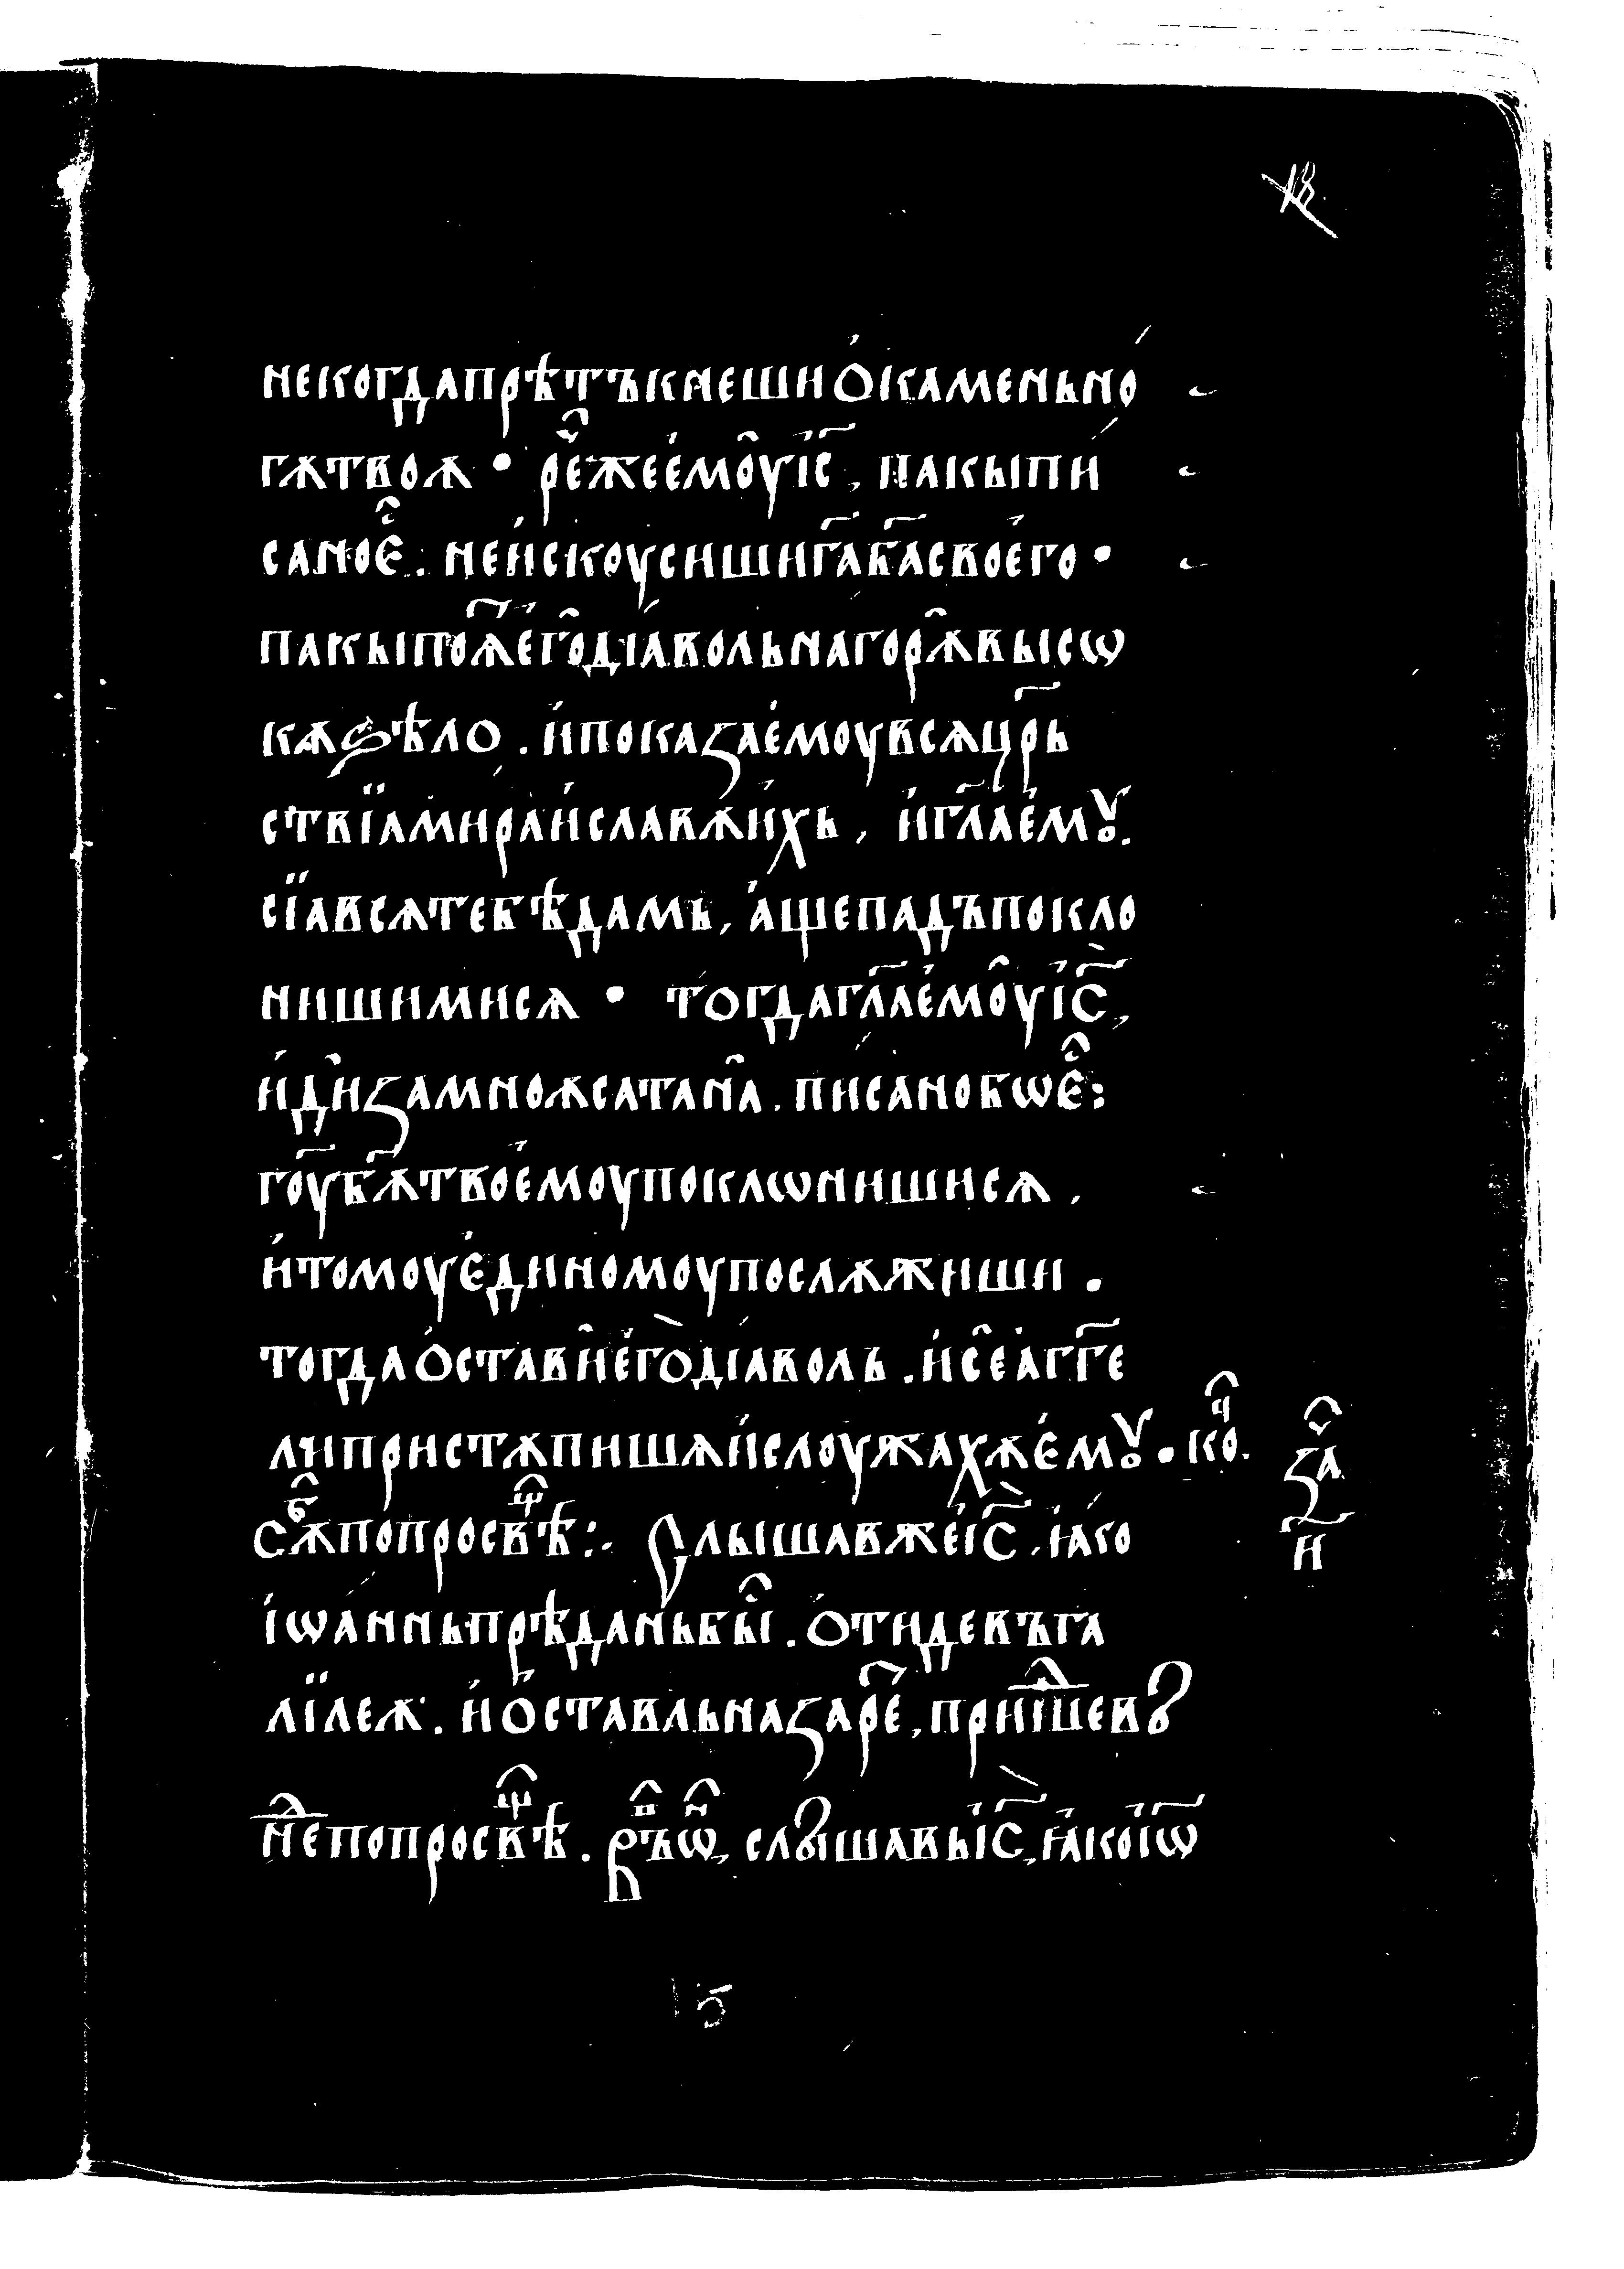 некогдапрѣтъкнешиѡ҆каменьно
гѫтвоѧ • реⷱ҇жеемоуі҆с҃, пакыпи
саноеⷭ҇. неи҆скоусишиг҃аб҃асвоего •
пакыпоѧ҃егодїаволънагорѫвысѡ
кѫѕѣло. и҆показаемоувсѧцр҃ь
ствїамираи҆славѫи҆хь, и҆гл҃аемꙋ.
сїавсѧтебѣдамь, а҆щепадъпокло
нишимисѧ • тогдагл҃аемоуі҆с҃,
и҆дизамноѫсатана. писанобѡеⷭ҇:
гоу҃б҃ѫтвоемоупоклѡнишисѧ,
и҆томоуе҆диномоупослѫжиши.
тогдао҆ставиегодїаволь. и҆сеаг҃ге
липристѫпишѫи҆слоужахѫе҆мꙋ. коⷱ҇.
сѫⷠ҇попросвⷳ҇ѣ:· Слышавжеі҆с҃, ꙗ҆ко
і҆ѡанньпрѣданьбыⷭ҇. ѻ҆тидевъга
лїлеѫ. и҆ѻ҆ставльназаре҃, приⷣшевꙋ
неⷣпопросвⷳ҇ѣ. слꙑшавьі҆с҃, ꙗ҆коі҆ѡ҃
заⷱ҇
и҃
15